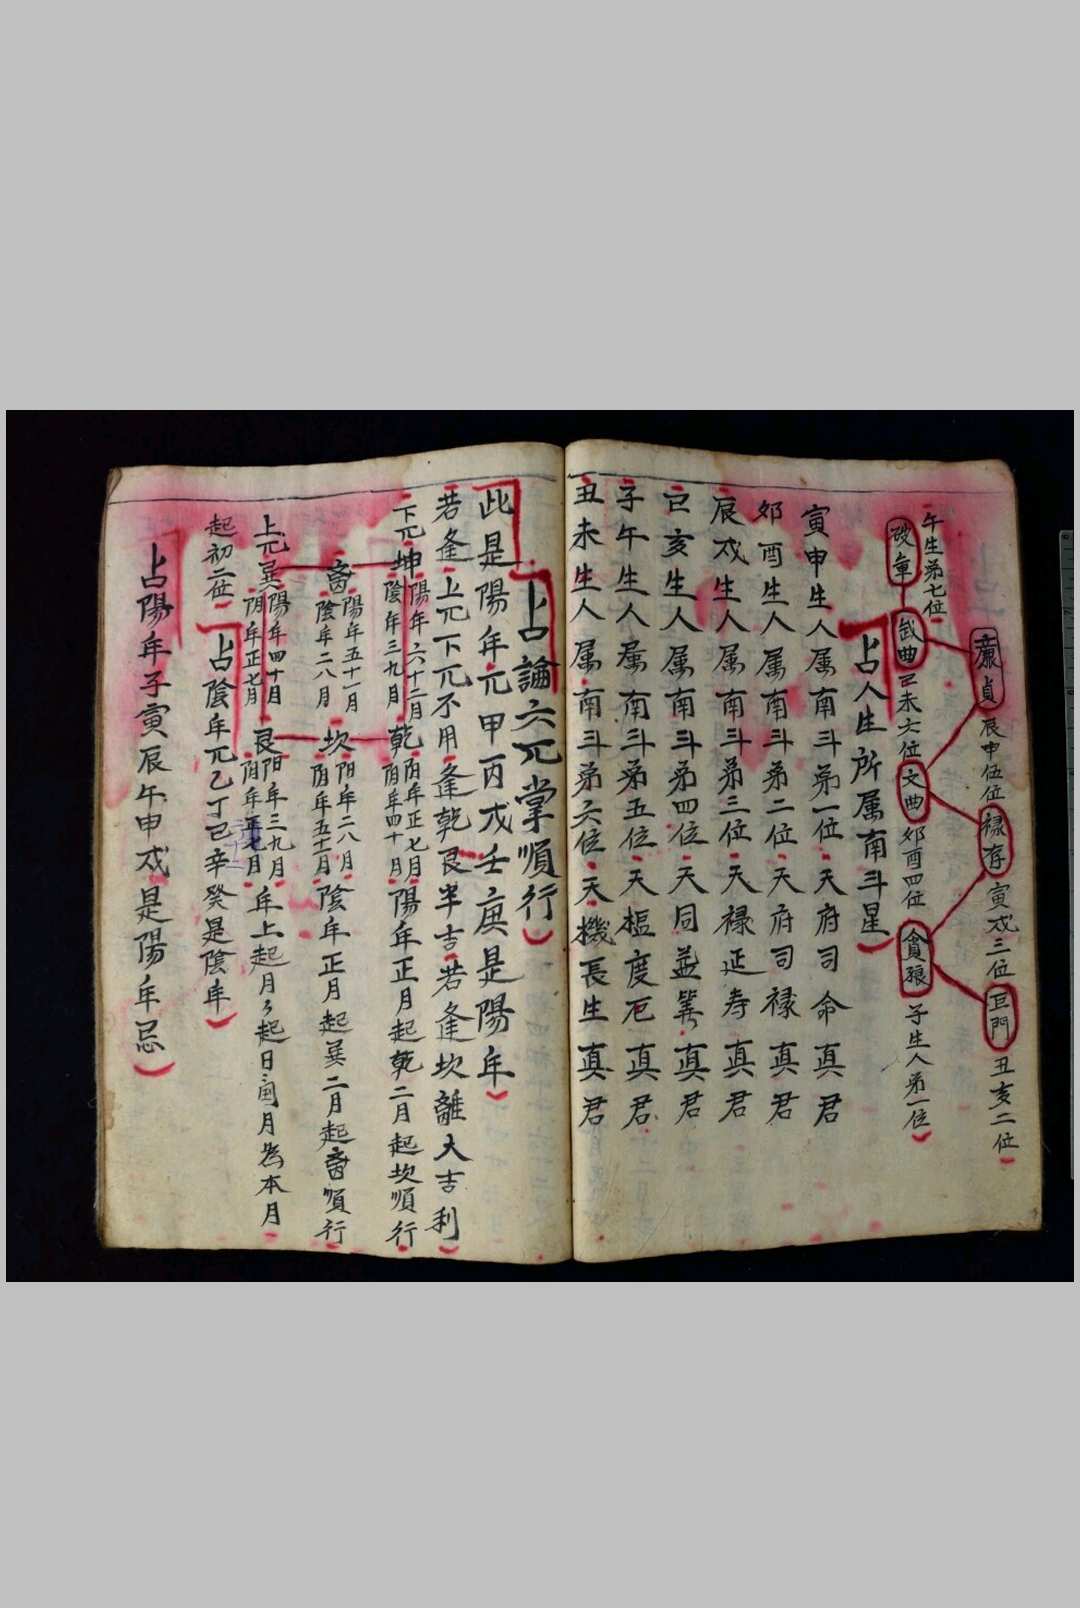 午生第七位
廉貞 辰申伍位 禄存 寅戌三位 巨門 丑亥二位
破軍 武曲 己未六位 文曲 卯酉四位 貪狼 子生人第一位
占人生所属南斗星
寅申生人属南斗第一位天府司命真君
卯酉生人属南斗第二位天府司禄真君
辰戌生人属南斗弟三位天禄延寿真君
巳亥生人属南斗第四位天同益筭真君
子午生人属南斗第五位天樞度厄真君
丑未生人属南斗弟六位天機長生真君
占論六兀掌順行
此是陽年元甲丙戊壬庚是陽年
若逢上兀下兀不用逢乾艮半吉若逢坎離大吉利
下兀坤 陽年六十二月 陰年三九月 乾 陽年正七月 阴年四十月 陽年正月起乾二月起坎順行
陽年五十一月 陰年二八月 坎 阳年二八月 阴年五十一月 陰年正月起巽二月起 順行
上兀巽 陽年四十月 阴年正七月 艮 阳年三九月 年上起月々起日 月為本月
起初二位
占陰年兀乙丁己辛癸是陰年
占陽年子寅辰午申戌是陽年忌